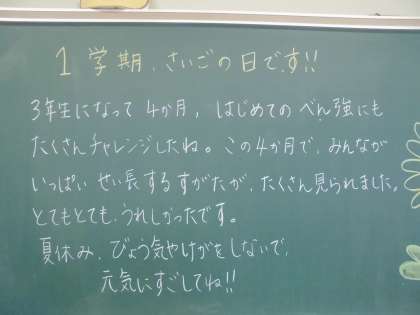 1学期、さいごの日です!!
3年生になって4か月、はじめてのべん強にも
たくさんチャレンジしたね。この4か月で、みんなが
いっぱいせい長するすがたが、たくさん見られました。
とてもとても、うれしかったです。
夏休み、びょう気やけがをしないで、
元気にすごしてね!!